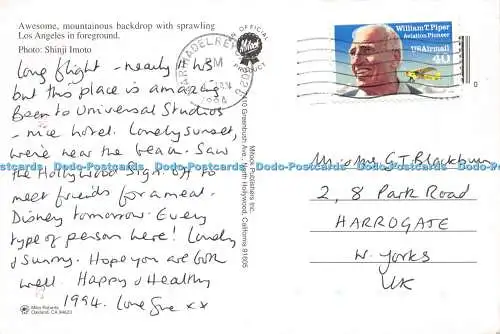 Awesome, mountainous backdrop with sprawling
Los Angeles in foreground.
Photo: Shinji Imoto
Long flight - nearly 12 hrs
but this place is amazing
Been to Universal Studios
- nice hotel. Lovely sunset,
we're near the beach. Saw
the Hollywood Sign. Off to
meet friends for a meal.
Disney tomorrow. Every
type of person here! Lovely
& Sunny. Hope you are both
well. Happy & Healthy
1994. Love Sue xx
Mitock Publishers Inc.
Ave., North Hollywood, California 91605
OFFICIAL
Mitock
PRODUCT
MARINA DEL REY
PM
JAN
1994
William T. Piper
Aviation Pioneer
USAirmail
40
Mr & Mrs G.T. Blackburn
2, 8 Park Road
HARROGATE
N. Yorks
UK
Miles Roberts
Oakland, CA 94623
Dodo-Postcards Dodo-Postcards Dodo-Postcards Dodo-Postcards